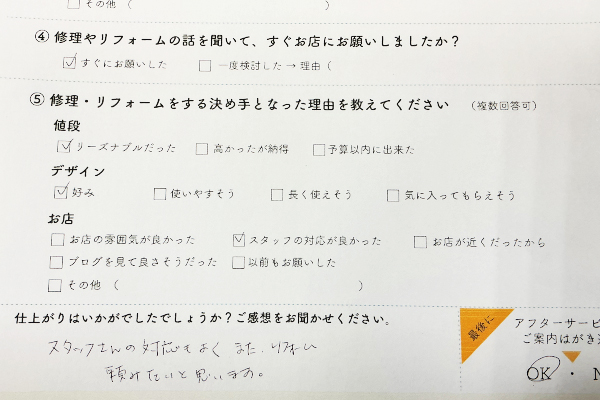 □ その他 (　　　)
④ 修理やリフォームの話を聞いて、すぐお店にお願いしましたか？
☑ すぐにお願いした □ 一度検討した → 理由 (
⑤ 修理・リフォームをする決め手となった理由を教えてください (複数回答可)
値段
☑ リーズナブルだった □ 高かったが納得 □ 予算以内に出来た
デザイン
☑ 好み □ 使いやすそう □ 長く使えそう □ 気に入ってもらえそう
お店
□ お店の雰囲気が良かった ☑ スタッフの対応が良かった □ お店が近くだったから
□ ブログを見て良さそうだった □ 以前もお願いした
□ その他 (　　　)
仕上がりはいかがでしたでしょうか？ご感想をお聞かせください。
スタッフさんの対応もよく また、
頼みたいと思います。
最後に
アフターサービ
ご案内はがき
OK ・ N